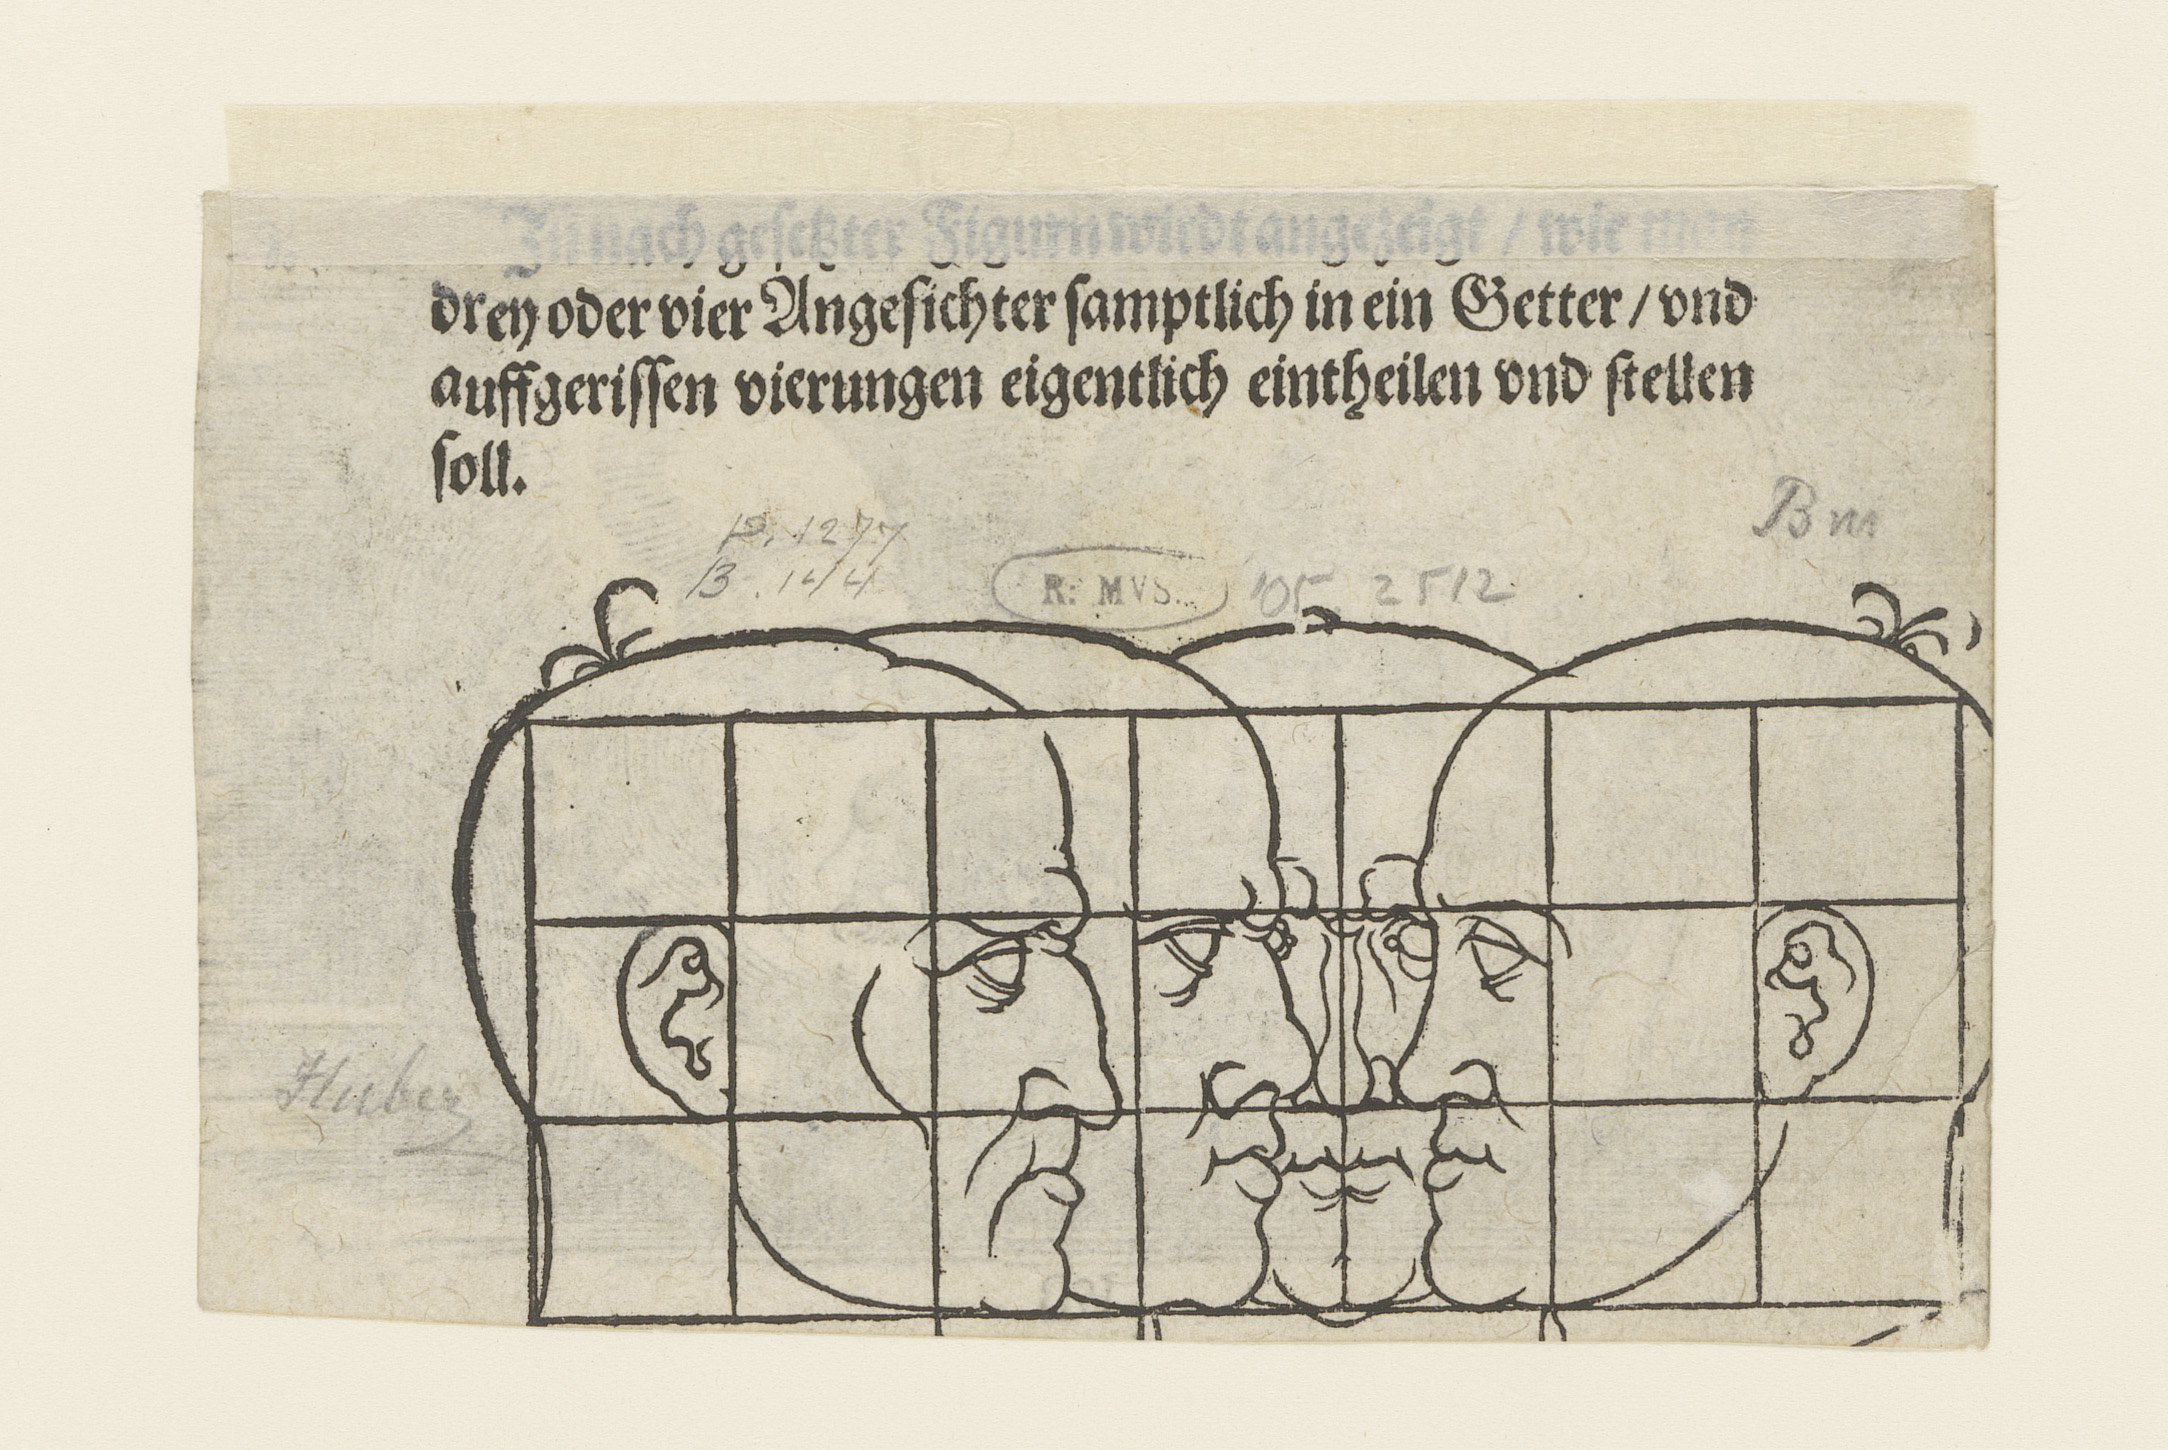 In nach gesetzter Figurn wirdt angezeigt / wie man
drey oder vier Angesichter samptlich in ein Getter / vnd
auffgerissen vierungen eigentlich eintheilen vnd stellen
soll.
P. 1277
B. 144
Bm
R. MVS.
2512
Huber